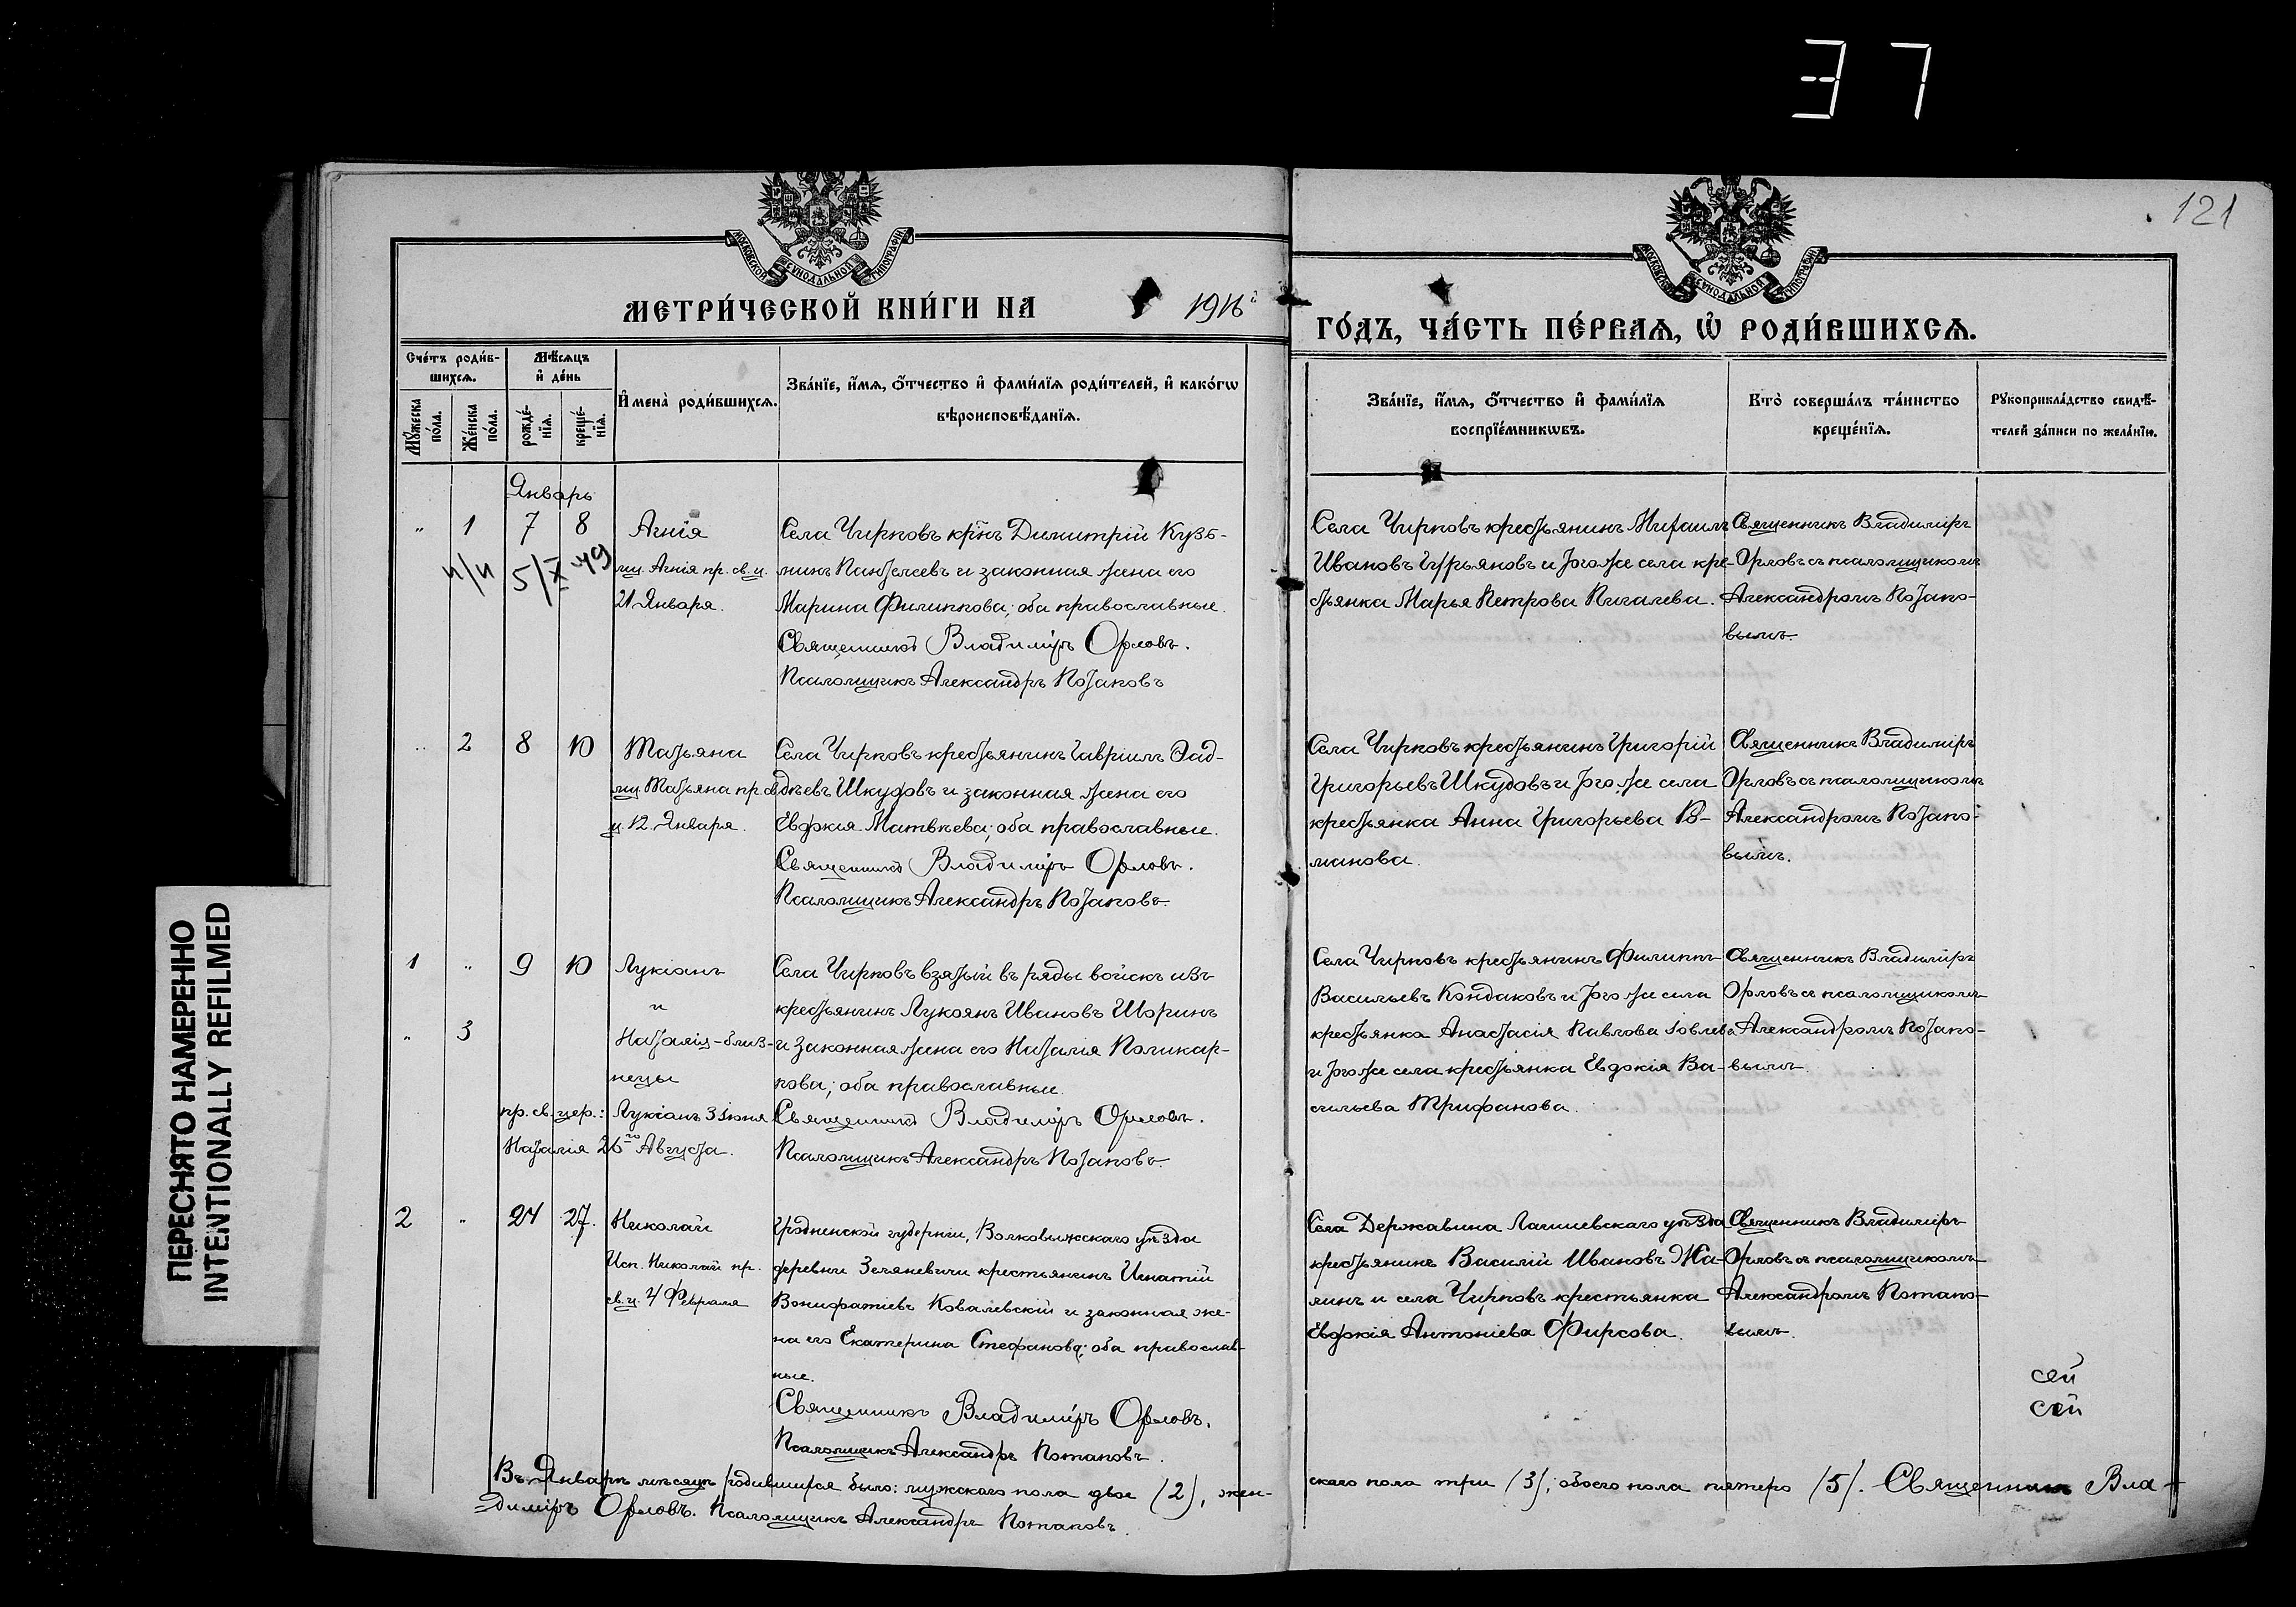 37
121
МОСКОВСКОЙ СѴНОДАЛЬНОЙ ТИПОГРАФІИ
МОСКОВСКОЙ СѴНОДАЛЬНОЙ ТИПОГРАФІИ
МЕТРИ́ЧЕСКОЙ КНИ́ГИ НА 1916 й
ГО́ДЪ, ЧА́СТЬ ПЕ́РВАѦ, Ѡ҆ РОДИ́ВШИХСѦ.
Сче́тъ роди́в-
шихсѧ.
Мѣ́сѧцъ
и҆ де́нь
Мꙋ́жеска по́ла.
Же́нска по́ла.
рожде́-
нїѧ.
креще́-
нїѧ.
И҆мена̀ роди́вшихсѧ.
Зва́нїе, и҆́мѧ, ѻ҆́тчество и҆ фами́лїѧ роди́телей, и҆ како́гѡ
вѣроисповѣ́данїѧ.
Зва́нїе, и҆́мѧ, ѻ҆́тчество и҆ фами́лїѧ
воспрїе́мникѡвъ.
Кто̀ соверша́лъ та́инство
креще́нїѧ.
Рꙋкоприкла́дство свидѣ́-
телей за́писи по жела́нїю.
Январь
" 1 7 8 Агнія
н/п 5/X 49
мц. Агнія пр. св. ц.
21 Января.
Села Чирковъ крн̃ъ Димитрій Кузь-
минъ Пантелеевъ и законная жена его
Марина Филиппова; оба православные.
Священникъ Владиміръ Орловъ.
Псаломщикъ Александръ Потаповъ
Села Чирковъ крестьянинъ Михаилъ
Ивановъ Гурьяновъ и того же села кре-
стьянка Марья Петрова Пигалева.
Священникъ Владиміръ
Орловъ съ псаломщикомъ
Александромъ Потапо-
вымъ.
" 2 8 10 Татьяна
мц. Татьяна пр. св.
ц. 12 Января.
Села Чирковъ крестьянинъ Гавріилъ Фад-
дѣевъ Шкудовъ и законная жена его
Евдокія Матвѣева; оба православные.
Священникъ Владиміръ Орловъ.
Псаломщикъ Александръ Потаповъ.
Села Чирковъ крестьянинъ Григорій
Григорьевъ Шкудовъ и того же села
крестьянка Анна Григорьева Ро-
манова.
Священникъ Владиміръ
Орловъ съ псаломщикомъ
Александромъ Потапо-
вымъ.
1 " 9 10 Лукіанъ
и
" 3 Наталія - близ-
нецы
пр. св. цер.: Лукіанъ 3 Іюня
Наталія 26го Августа.
Села Чирковъ взятый въ ряды войскъ изъ
крестьянинъ Лукоянъ Ивановъ Шоринъ
и законная жена его Наталія Поликар-
пова; оба православные.
Священникъ Владиміръ Орловъ.
Псаломщикъ Александръ Потаповъ.
Села Чирковъ крестьянинъ Филиппъ
Васильевъ Кондаковъ и того же села
крестьянка Анастасія Павлова
и того же села крестьянка Евдокія Ва-
сильева Трифанова.
Священникъ Владиміръ
Орловъ съ псаломщикомъ
Александромъ Потапо-
вымъ.
2 " 24 27. Николай
Исп. Николай пр.
св. ц. 4 Февраля
Гродненской губерніи, Волковыжскаго уѣзда
деревни Зеляневичи крестьянинъ Игнатій
Вонифатіевъ Ковалевскій и законная же-
на его Екатерина Стефанова; оба православ-
ные.
Священникъ Владиміръ Орловъ.
Псаломщикъ Александръ Потаповъ.
Села Державина Лаишевскаго уѣзда
крестьянинъ Василій Ивановъ Жа-
линъ и села Чирковъ крестьянка
Евдокія Антоніева Фирсова.
Священникъ Владиміръ
Орловъ съ псаломщикомъ
Александромъ Потапо-
вымъ.
сей
сей
Въ Январѣ мѣсяцѣ родившихся было: мужскаго пола двое (2), жен-
скаго пола три (3); обоего пола пятеро (5). Священникъ Вла-
диміръ Орловъ. Псаломщикъ Александръ Потаповъ.
ПЕРЕСНЯТО НАМЕРЕННО
INTENTIONALLY REFILMED